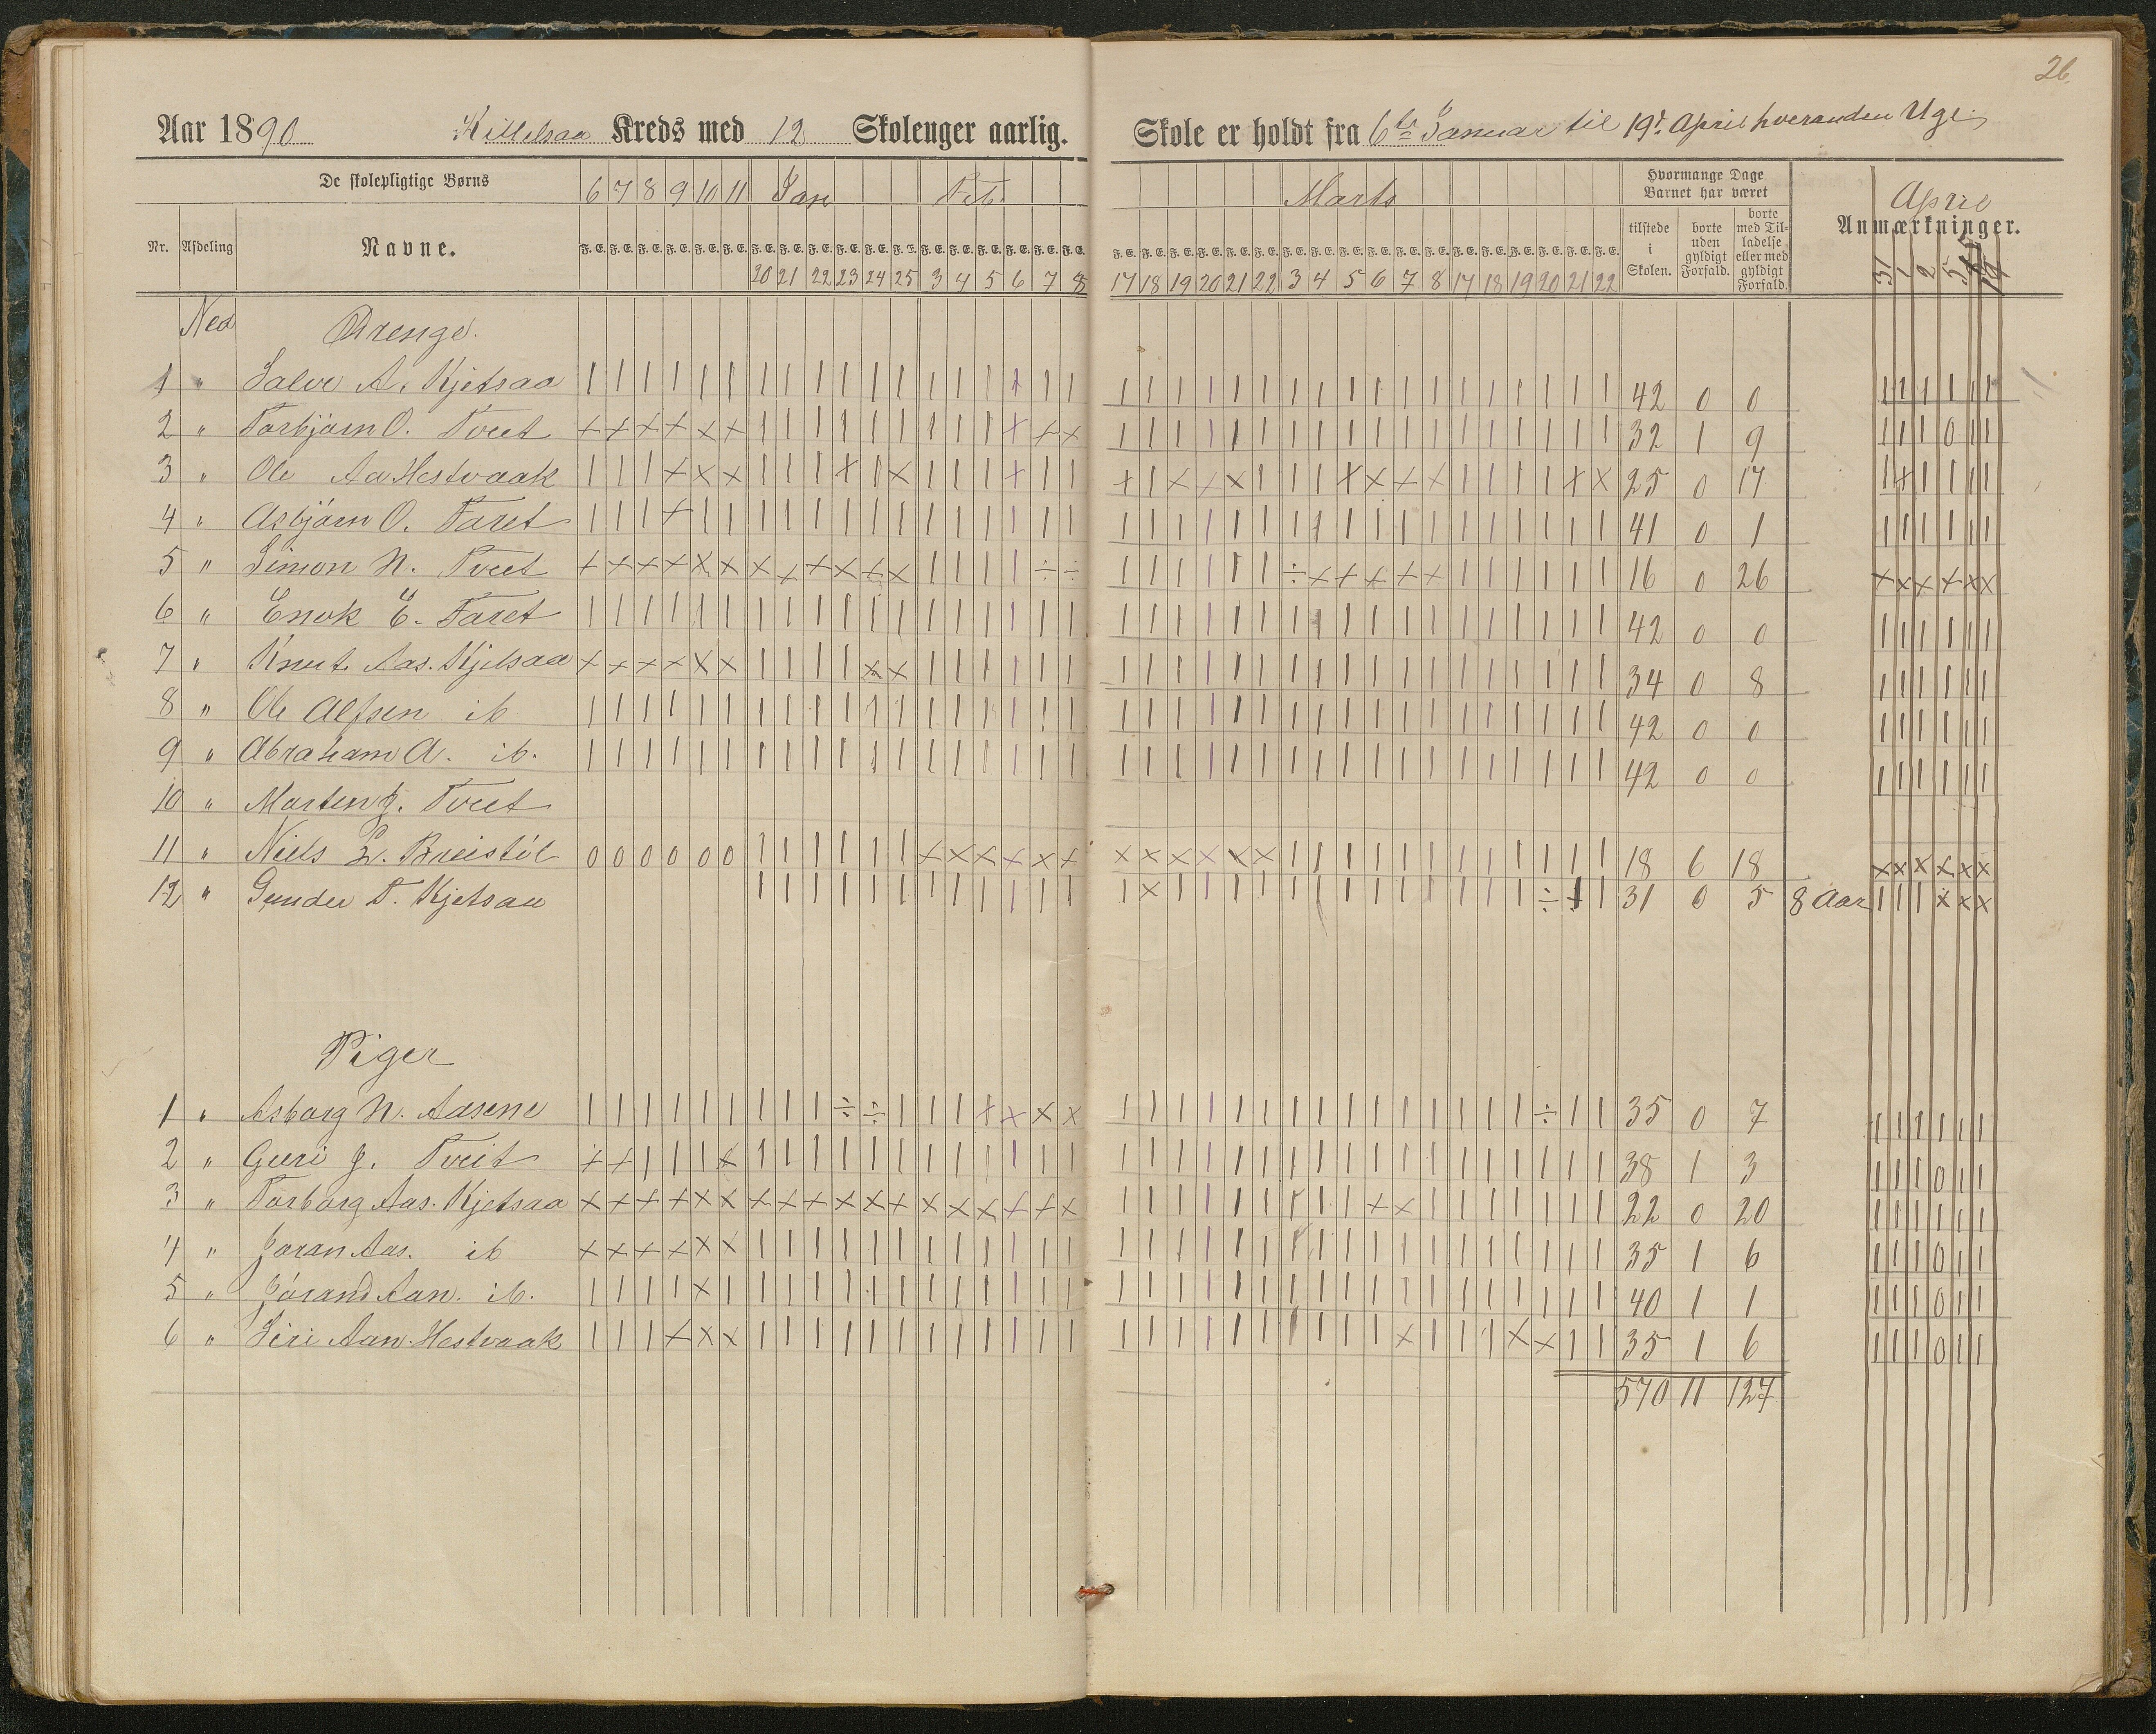 26.
Aar 1890 Kittelsaa Kreds med 12 Skoleuger aarlig.
Skole er holdt fra 6te Januar til 19de April hveranden Uge
De skolepligtige Børns 6 7 8 9 10 11 Jan Feb.
Marts Hvormange Dage Barnet har været April
Nr. Afdeling Navne. F.E. F.E. F.E. F.E. F.E. F.E. F.E. F.E. F.E. F.E. F.E. F.E. F.E. F.E. F.E. F.E. F.E. F.E.
20 21 22 23 24 25 3 4 5 6 7 8
F.E. F.E. F.E. F.E. F.E. F.E. F.E. F.E. F.E. F.E. F.E. F.E. F.E. F.E. F.E. F.E. F.E. F.E.
17 18 19 20 21 22 3 4 5 6 7 8 17 18 19 20 21 22
tilstede i Skolen. borte uden gyldigt Forfald. borte med Tilladelse eller med gyldigt Forfald. Anmærkninger.
31 1 2 5
Ned Drenge.
1 " Salve A. Kjetsaa 42 0 0
2 " Torbjørn O. Tveet 32 1 9
3 " Ole Aa Hestvaak 25 0 17
4 " Asbjørn O. Faret 41 0 1
5 " Simon N. Tveet 16 0 26
6 " Enok E. Faret 42 0 0
7 " Knut Aas. Kjetsaa 34 0 8
8 " Ole Alfsen ib 42 0 0
9 " Abraham A. ib. 42 0 0
10 " Morten J. Tveet
11 " Niels L. Breistöl 0 0 0 0 0 0 18 6 18
12 " Gunder T. Kjetsaa 31 0 5 8 Aar
Piger
1 " Asborg N. Aasene 35 0 7
2 " Guri J. Tveit 38 1 3
3 " Torborg Aas. Kjetsaa 22 0 20
4 " Joran Aas. ib 35 1 6
5 " Jörand Aan. ib. 40 1 1
6 " Siri Aan. Hestvaak 35 1 6
570 11 127